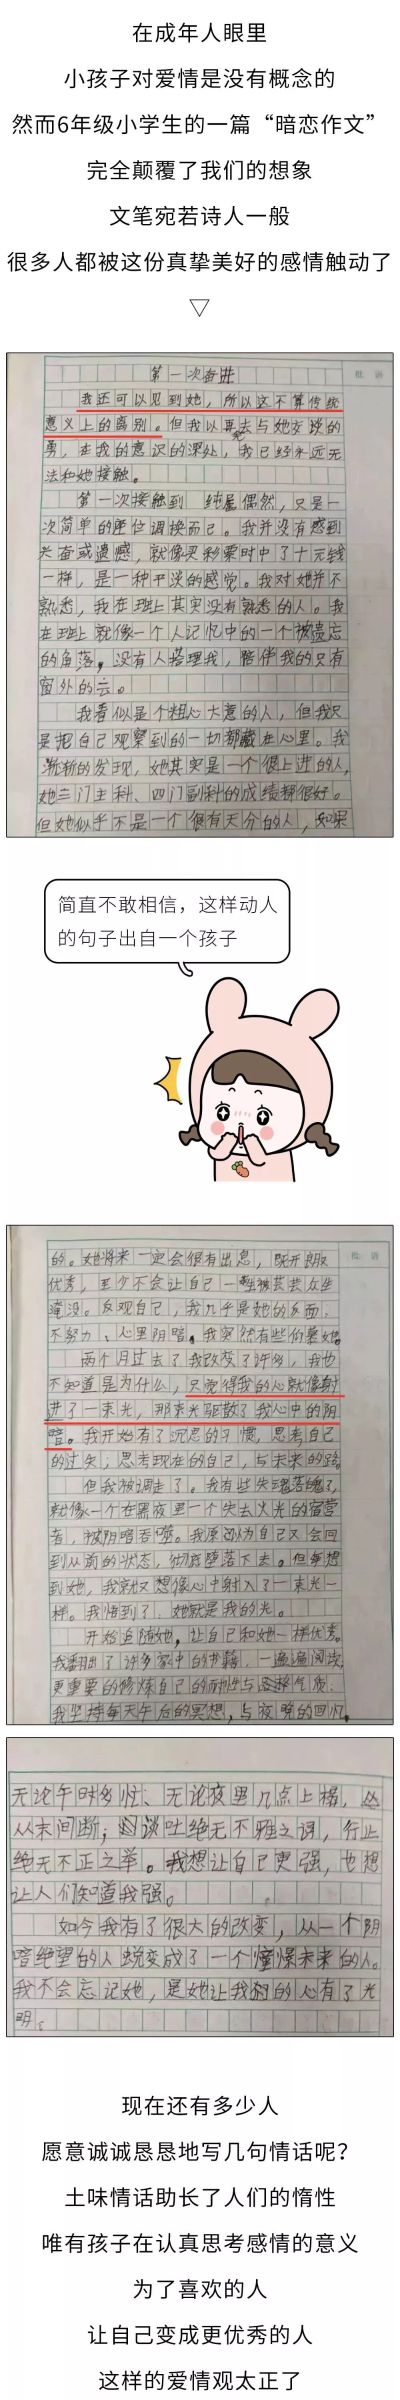 在成年人眼里
小孩子对爱情是没有概念的
然而6年级小学生的一篇“暗恋作文”
完全颠覆了我们的想象
文笔宛若诗人一般
很多人都被这份真挚美好的感情触动了
批 语
第一次奋进
我还可以见到她，所以这不算传统
意义上的离别。但我以再去与她交谈的
勇，在我的意识的深处，我已经永远无
法和她接触。
第一次接触到 纯属偶然，只是一
次简单的座位调换而已。我并没有感到
兴奋或遗憾，就像买彩票时中了十元钱
一样，是一种平淡的感觉。我对她并不
熟悉，我在班上其实没有熟悉的人。我
在班上就像一个人记忆中的一个被遗忘
的角落，没有人搭理我，陪伴我的只有
窗外的云。
我看似是个粗心大意的人，但我只
是把自己观察到的一切都藏在心里。我
渐渐的发现，她其实是一个很上进的人，
她三门主科、四门副科的成绩都很好。
但她似乎不是一个很有天分的人，如果
简直不敢相信，这样动人
的句子出自一个孩子
批 语
的。她将来一定会很有出息，既开朗又
优秀，至少不会让自己一生被芸芸众生
淹没。反观自己，我几乎是她的反面：
不努力、心里阴暗。我突然有些仰慕她。
两个月过去了我改变了许多，我也
不知道是为什么，只觉得我的心就像射
进了一束光，那束光驱散了我心中的阴
暗。我开始有了沉思的习惯，思考自己
的过失；思考现在的自己，与未来的路。
但我被调走了。我有些失魂落魄了，
就像一个在黑夜里一个失去火光的宿营
者，被阴暗吞噬。我原以为自己又会回
到从前的状态，彻底堕落下去。但每想
到她，我就又想像心中射入了一束光一
样。我悟到了：她就是我的光。
开始追随她，让自己和她一样优秀。
我翻出了许多家中的书籍，一遍遍阅读，
更重要的修炼自己的耐性与 气质：
我坚持每天午后的冥想，与夜晚的回忆，
无论午时多忙、无论夜里几点上榻，
从未间断；谈吐绝无不雅之词，行止
绝无不正之举。我想让自己更强，也想
让人们知道我强。
如今我有了很大的改变，从一个阴
暗绝望的人蜕变成了一个憧憬未来的人。
我不会忘记她，是她让我的心有了光
明。
现在还有多少人
愿意诚诚恳恳地写几句情话呢？
土味情话助长了人们的惰性
唯有孩子在认真思考感情的意义
为了喜欢的人
让自己变成更优秀的人
这样的爱情观太正了